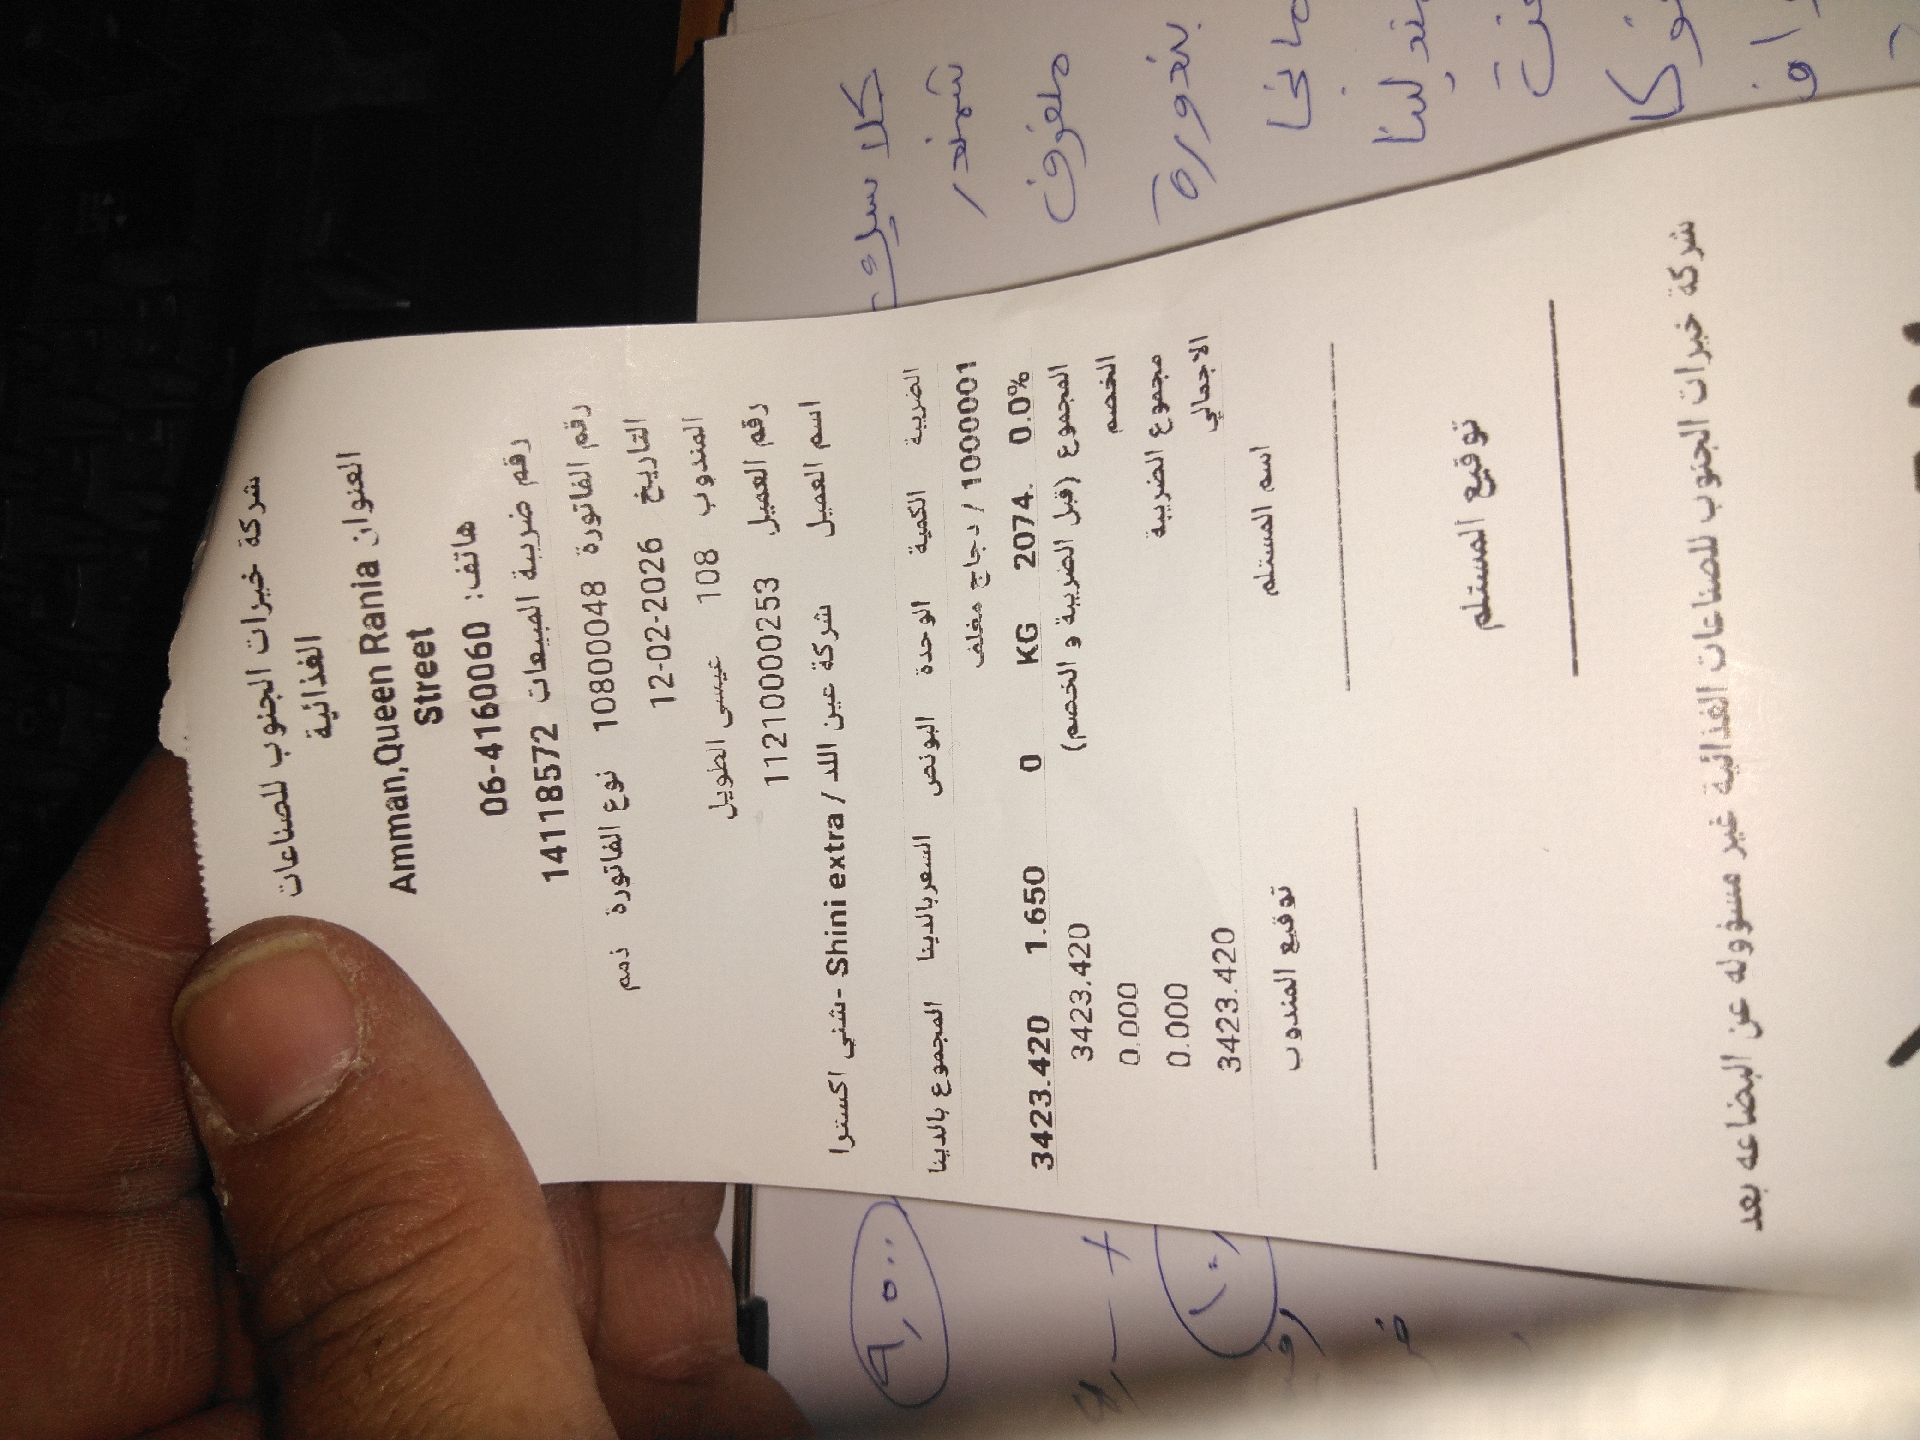 شركة خيرات الجنوب للصناعات
الغذائية
العنوان Amman,Queen Rania
Street
هاتف: 06-4160060
رقم ضريبة المبيعات 14118572
رقم الفاتورة 10800048 نوع الفاتورة ذمم
التاريخ 12-02-2026
المندوب 108 عيسى الطويل
رقم العميل 11210000253
اسم العميل شركة عين اللد / Shini extra -شني اكسترا
الضريبة الكمية الوحدة البونص السعربالدينا المجموع بالدينا
1000001 / دجاج مغلف
0.0% 2074. KG 0 1.650 3423.420
المجموع (قبل الضريبة و الخصم) 3423.420
الخصم 0.000
مجموع الضريبة 0.000
الاجمالي 3423.420
اسم المستلم توقيع المندوب
توقيع المستلم
شركة خيرات الجنوب للصناعات الغذائية غير مسؤوله عن البضاعه بعد
كلاسيك ٩,٥٠٠
شمندر
ملفوف
بندورة